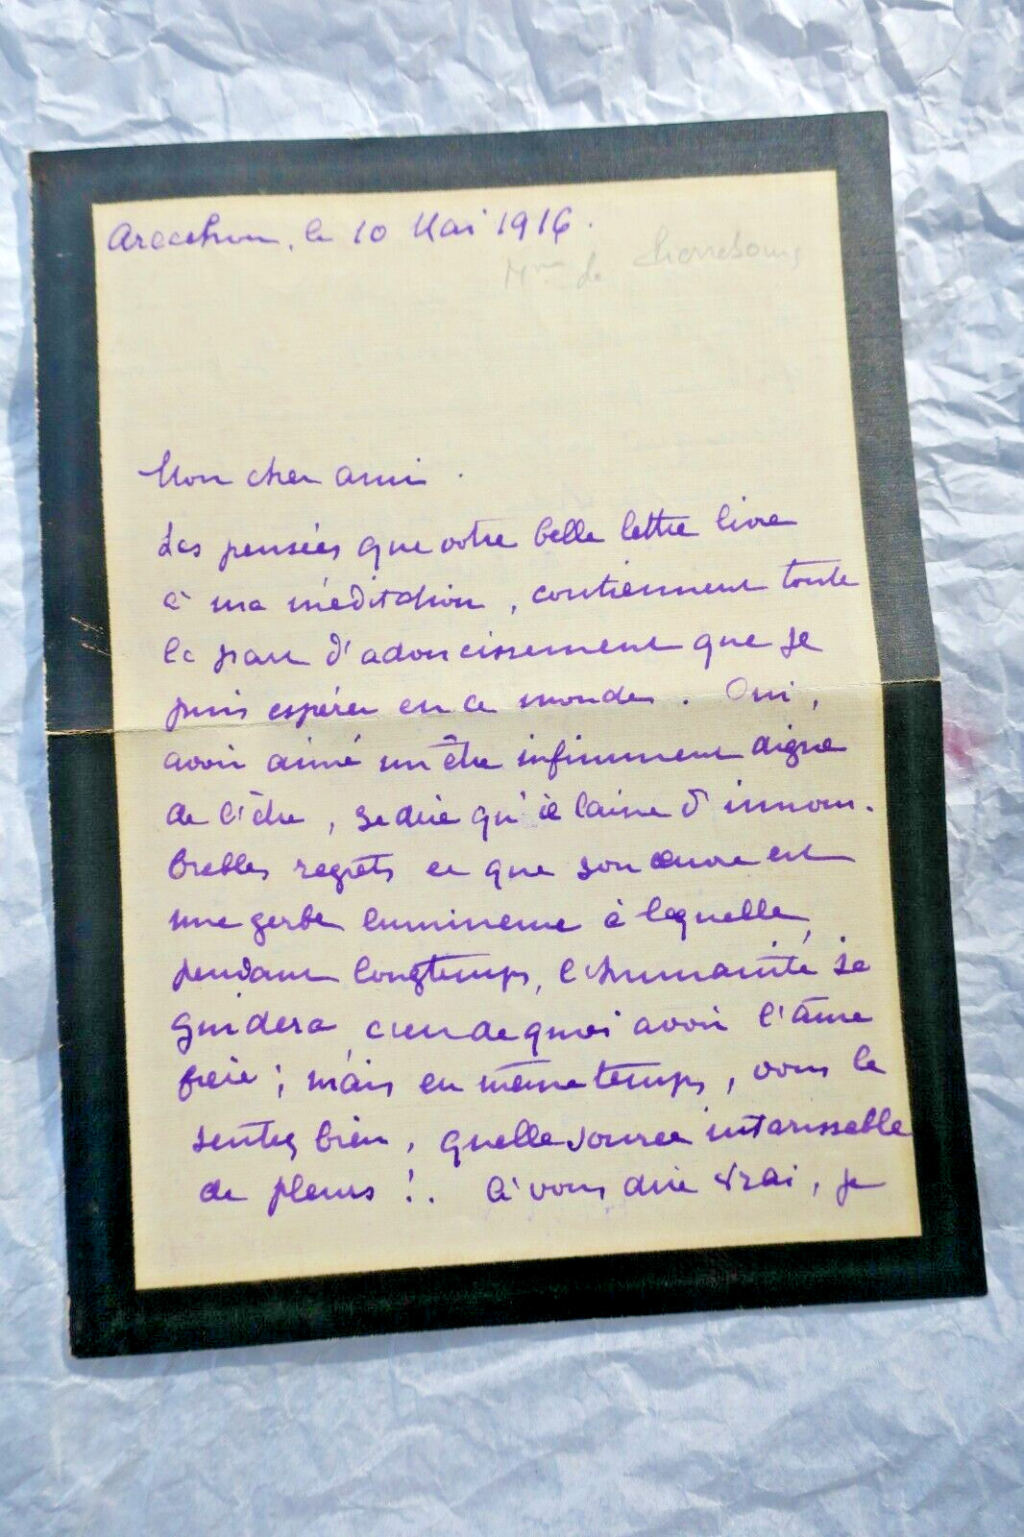 Arcachon, le 10 Mai 1916.
Mme de Pierrebourg
Mon cher ami.
Les pensées que votre belle lettre livre
à ma méditation, contiennent toute
la part d'adoucissement que je
puis espérer en ce monde. Oui,
avoir aimé un être infiniment digne
de l'être, se dire qu'il laisse d'innom-
brables regrets et que son œuvre est
une gerbe lumineuse à laquelle,
pendant longtemps, l'humanité se
guidera c'est de quoi avoir l'âme
fière; mais en même temps, vous le
sentez bien, quelle source intarissable
de pleurs !.. À vous dire vrai, je